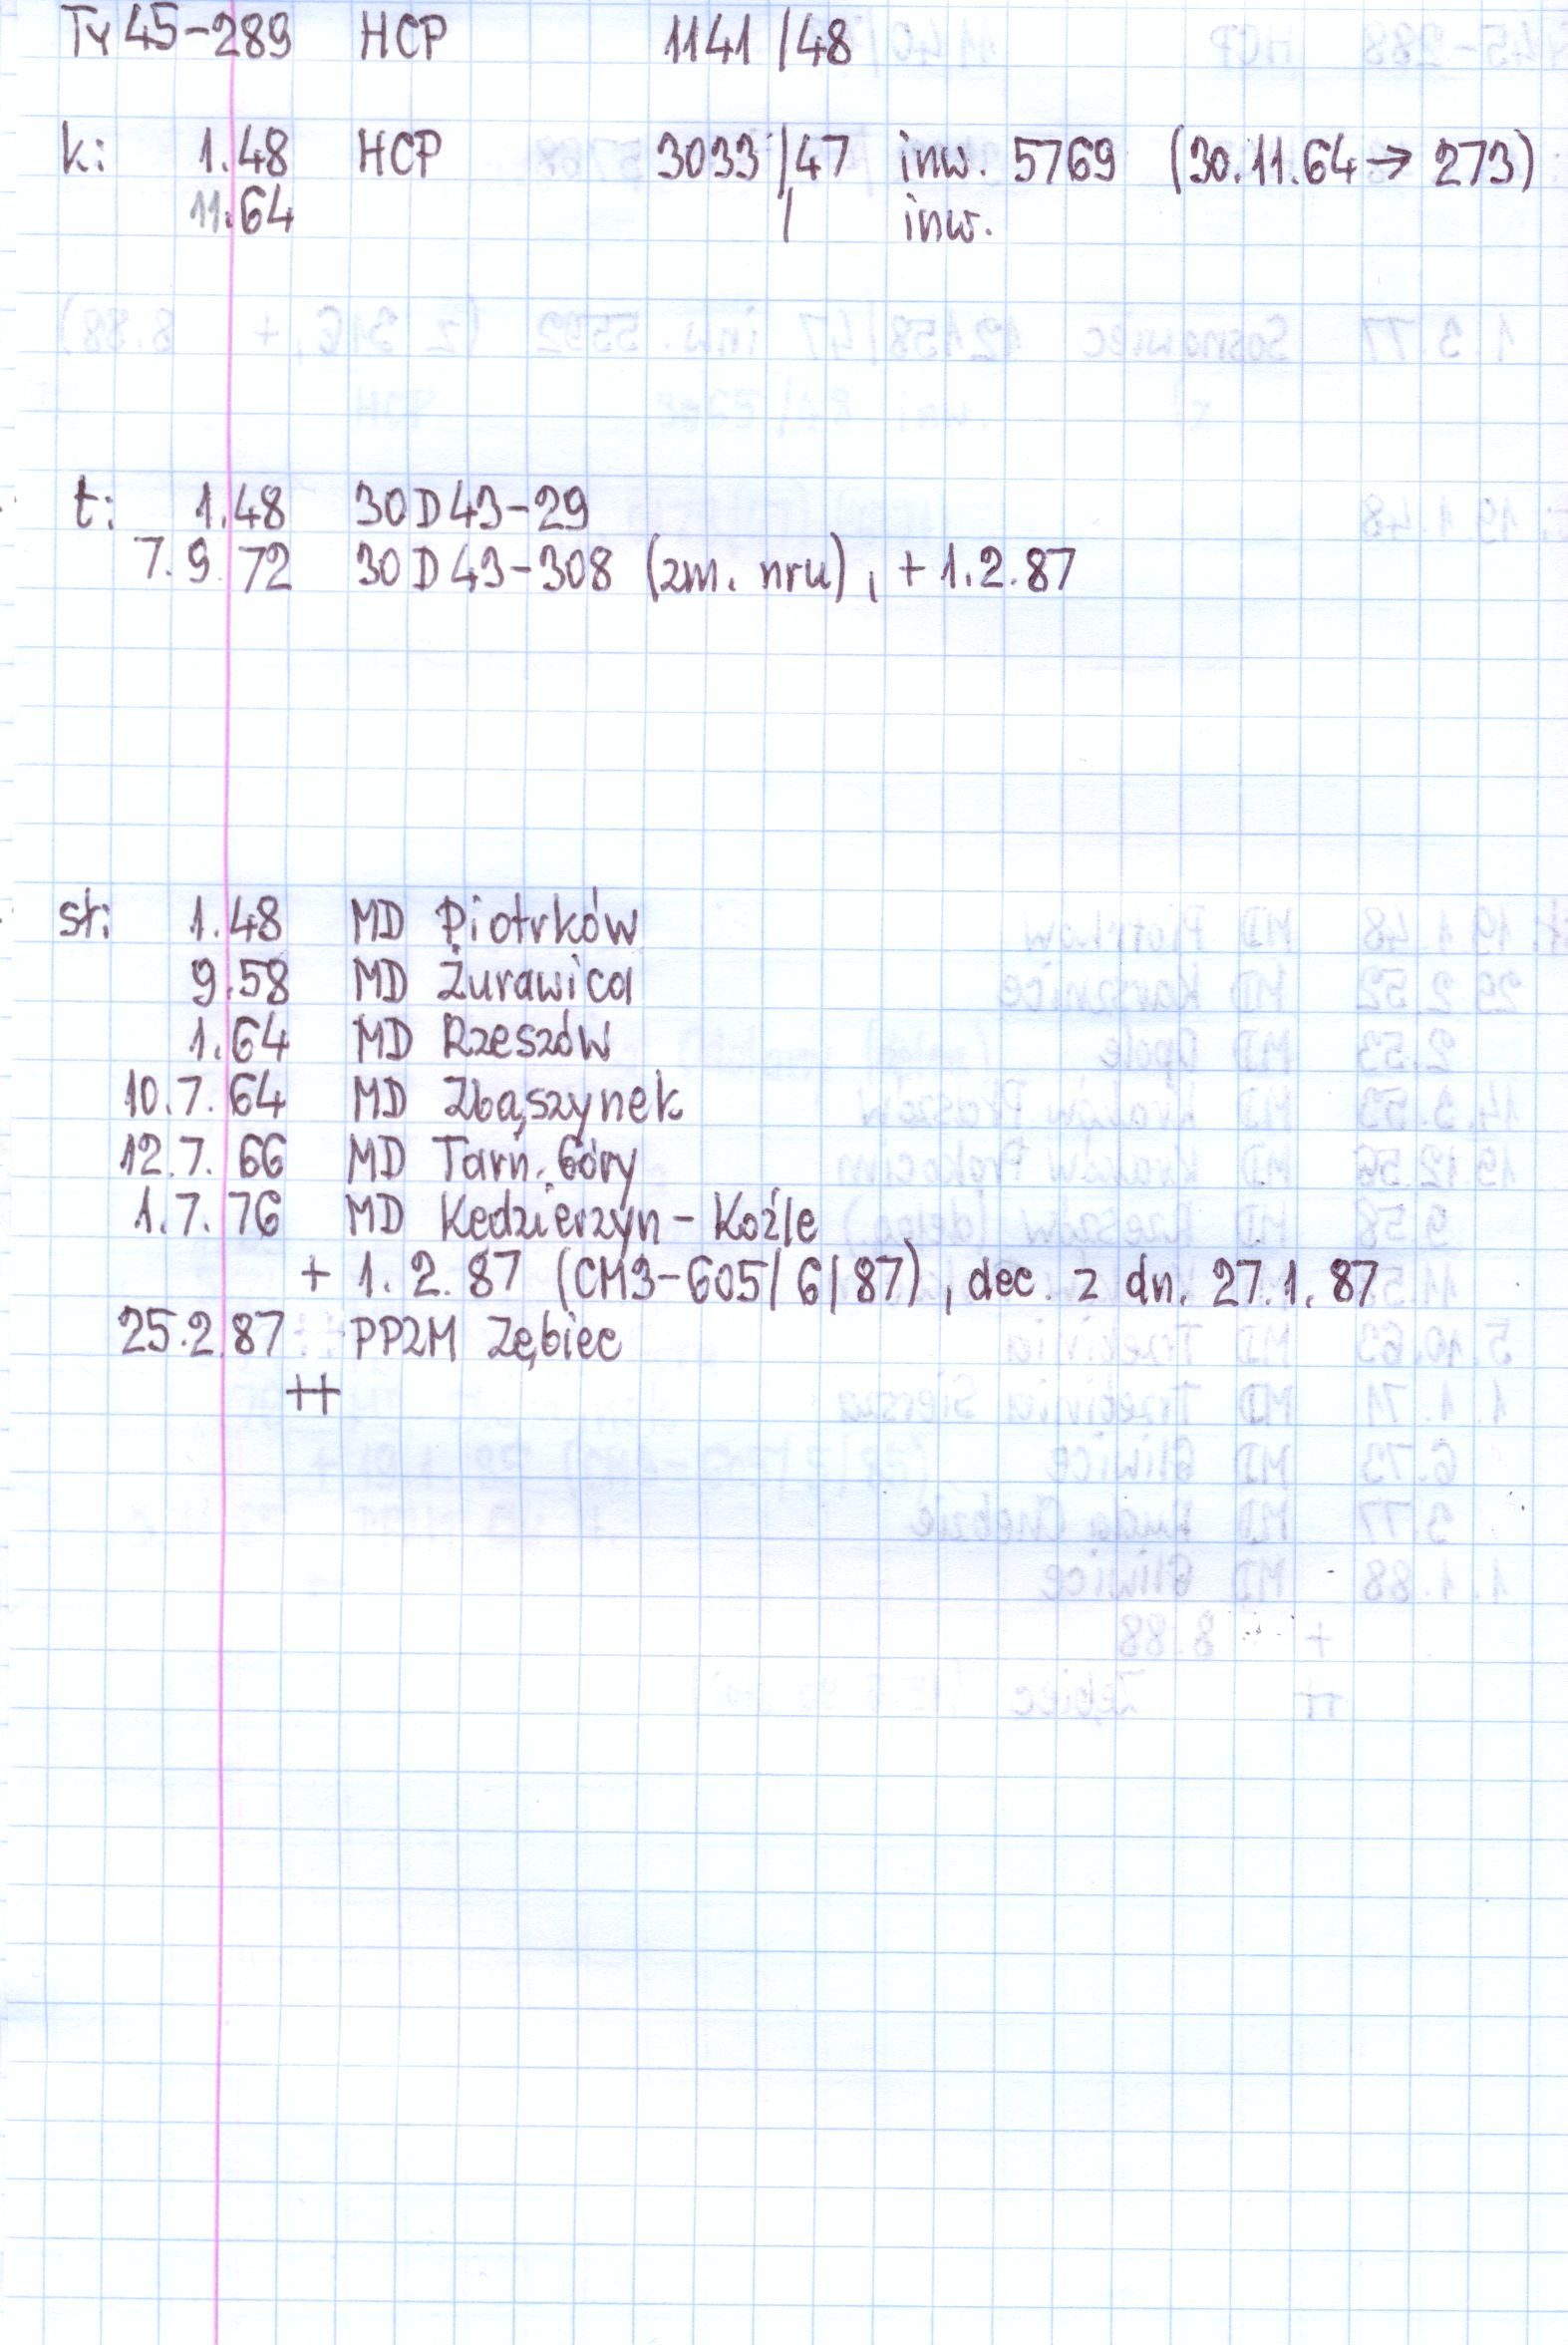 Ty45-289 HCP 1141/48
k: 1.48 HCP 3033/47 inw. 5769 (30.11.64→273)
11.64 / inw.
t: 1.48 30D43-29
7.9.72 30D43-308 (zm. nru), +1.2.87
st: 1.48 MD Piotrków
9.58 MD Żurawica
1.64 MD Rzeszów
10.7.64 MD Zbąszynek
12.7.66 MD Tarn. Góry
1.7.76 MD Kędzierzyn-Koźle
+ 1.2.87 (CM3-605/6/87), dec. z dn. 27.1.87
25.2.87 PPZM Zębiec
++